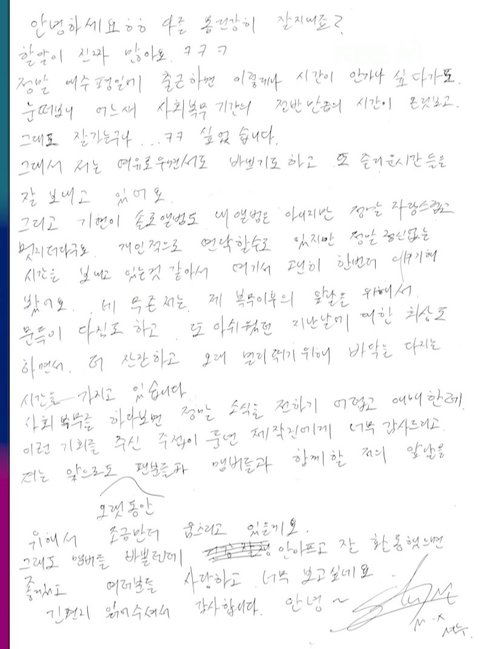 안녕하세요ㅎㅎ 다들 몸건강히 잘지내죠?
할말이 진짜 많아요. ㅋㅋㅋ
정말 매주 평일에 출근하면 이렇게나 시간이 안가나 싶다가도.
눈떠보니 어느새 사회복무기간의 절반만큼의 시간이 온것보고.
그래도 잘가는구나...ㅋㅋ 싶었습니다.
그래서 저는 여유로우면서도 바쁘기도하고 또 즐거운시간들을
잘 보내고 있어요
그리고 기현이 솔로앨범도 내앨범은 아니지만 정말 자랑스럽고
멋지더다구요. 개인적으로 연락할수도 있지만 정말 정신없는
시간을 보내고 있는것 같아서 여기서 괜히 한번더 얘기해
봤어요. 네 무튼 저는. 제 복무이후의 앞날을 위해서.
문득이 다심도 하고. 또 아쉬웠던 지난날에 대한 회상도
하면서. 더 단단하고 오래 멀리 뛰기위해 바닥을 다지는
시간을 가지고 있습니다
사회복무를 하다보면 정말 소식을 전하기 어렵고 애매한데.
이런 기회를 주신 주접이 풍년 제작진에게 너무 감사드리고.
저는 앞으로도 팬분들과 멤버들과 함께할 저의 앞날을
오랫동안
위해서 조금만더 웁스리고 있을게요.
그래도 멤버들 바쁠텐데 안아프고 잘 활동했으면
좋겠고 여러분들 사랑하고 너무 보고싶네요
긴편지 읽어주셔서 감사합니다. 안녕~
M.X